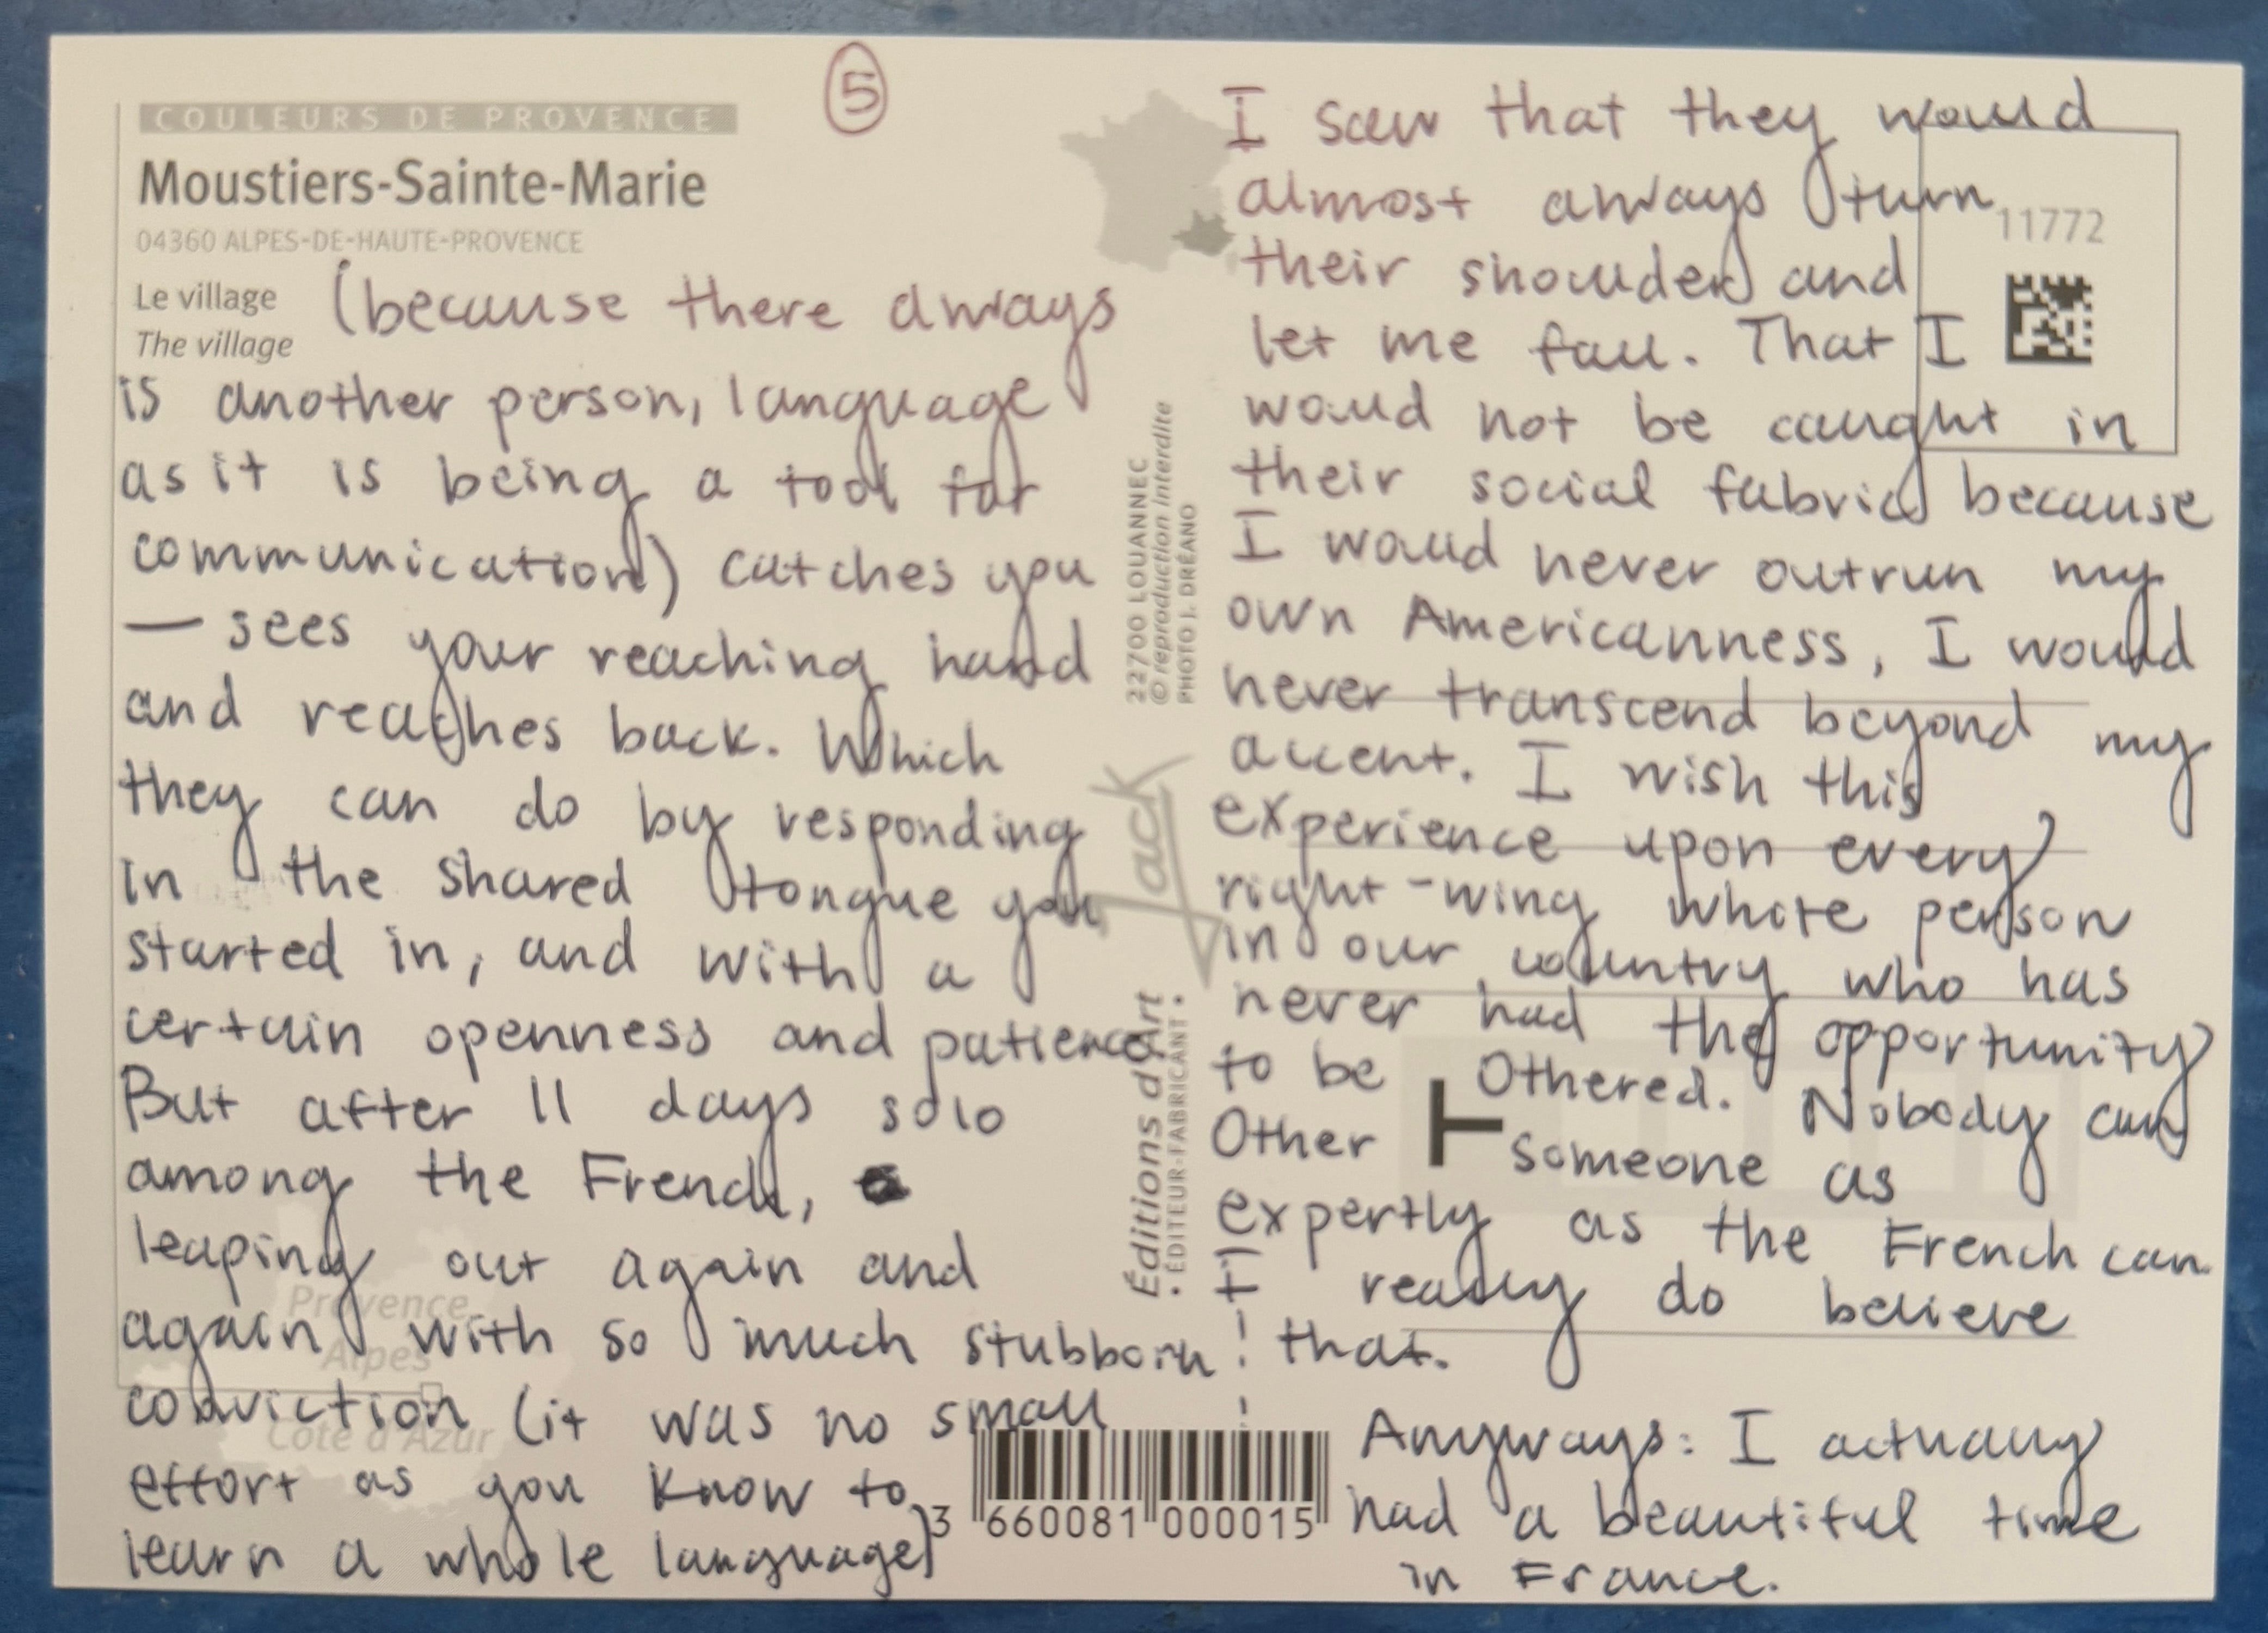 5
COULEURS DE PROVENCE
Moustiers-Sainte-Marie
04360 ALPES-DE-HAUTE-PROVENCE
Le village
The village
(because there always
is another person, language
as it is being a tool for
communication) catches you
— sees your reaching hand
and reaches back. Which
they can do by responding
in the shared tongue you
started in, and with a
certain openness and patience.
But after 11 days solo
among the French,
leaping out again and
again with so much stubborn
conviction (it was no small
effort as you know to
learn a whole language)
Provence
Alpes
Côte d'Azur
22700 LOUANNEC
© reproduction interdite
PHOTO J. DRÉANO
Jack
Éditions d'Art
• ÉDITEUR-FABRICANT •
3 660081 000015
11772
I saw that they would
almost always turn
their shoulder and
let me fall. That I
would not be caught in
their social fabric because
I would never outrun my
own Americanness, I would
never transcend beyond my
accent. I wish this
experience upon every
right-wing white person
in our country who has
never had the opportunity
to be Othered. Nobody can
Other someone as
expertly as the French can.
I really do believe
that.
Anyways: I actually
had a beautiful time
in France.
T